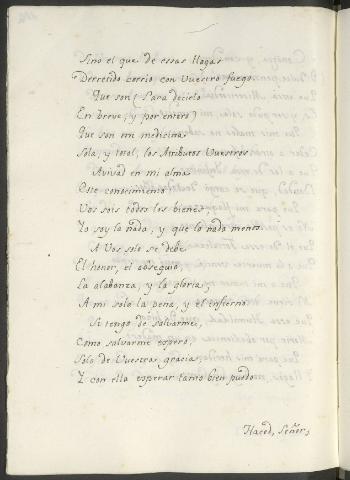 Sino el que de essas llagas
Derretido corrio con Vuestro fuego.
Que son (Para decirlo
En breve, y por entero)
Que son mi medicina
Sola, y total, los Atributos Vuestros.
Avivad en mi alma
Este conocimiento.
Vos sois todos los bienes,
Yo soy la nada, y que la nada menos.
A Vos solo se debe
El honor, el obsequio,
La alabanza, y la gloria;
A mi solo la pena, y el infierno.
Si tengo de salvarme,
Como salvarme espero,
Solo de Vuestra gracia,
Y con ella esperar tanto bien puedo.
Haced, Señor,